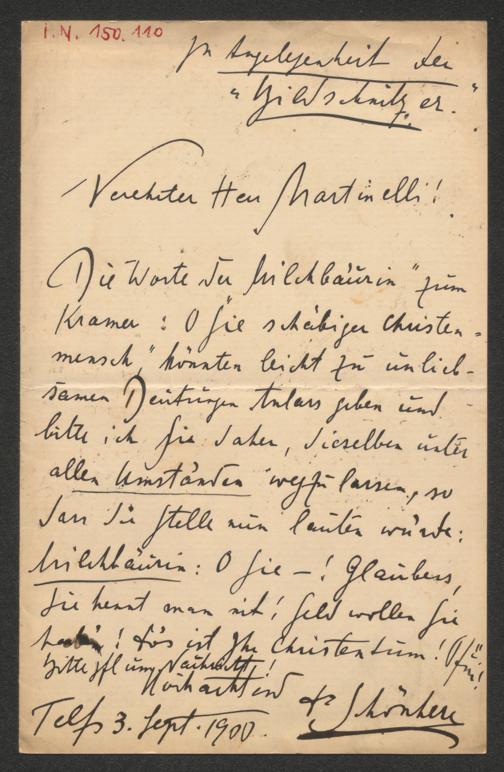 I.N. 150.110
In Angelegenheit der
"Bildschnitzer."
Verehrter Herr Martinelli!
Die Worte der Milchbäurin "zum
Kramer: O Sie schäbiger Christen-
mensch," könnten leicht zu unlieb-
samen Deutungen Anlass geben und
bitte ich Sie daher, dieselben unter
allen Umständen wegzulassen, so
dass die Stelle nun lauten würde:
Milchbäurin: O Sie –! Glaubens,
Sie kennt man nit! Geld wollen Sie
haben! Dös ist Ihr Christentum! Pfui!
Bitte gfl um Nachricht!
Hochachtend
Dr Schönherr
Telfs 3. Sept. 1900.